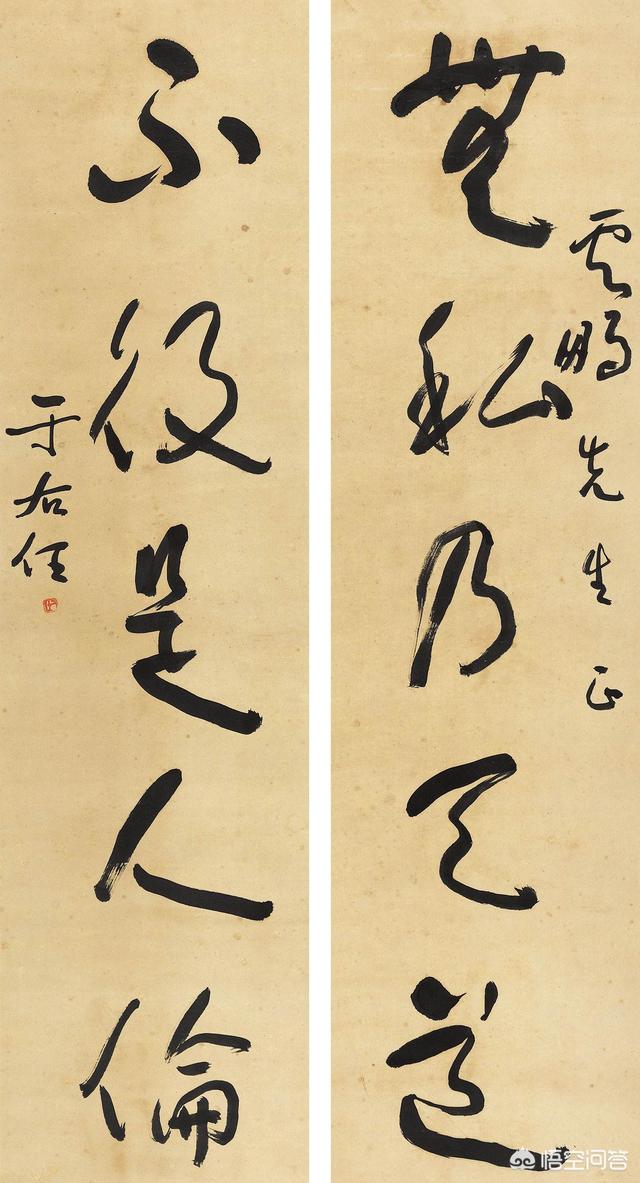 雲鵬先生正
無私乃天道
不役是人倫
于右任
悟空问答